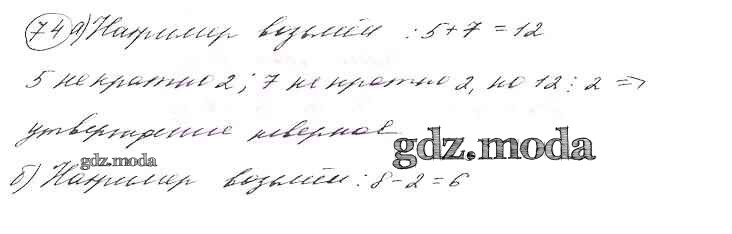 74 а) Например возьмём : 5 + 7 = 12
5 не кратно 2 ; 7 не кратно 2, но 12 ⋮ 2 =>
утверждение неверное
gdz.moda
gdz.moda
б) Например возьмём : 8 - 2 = 6